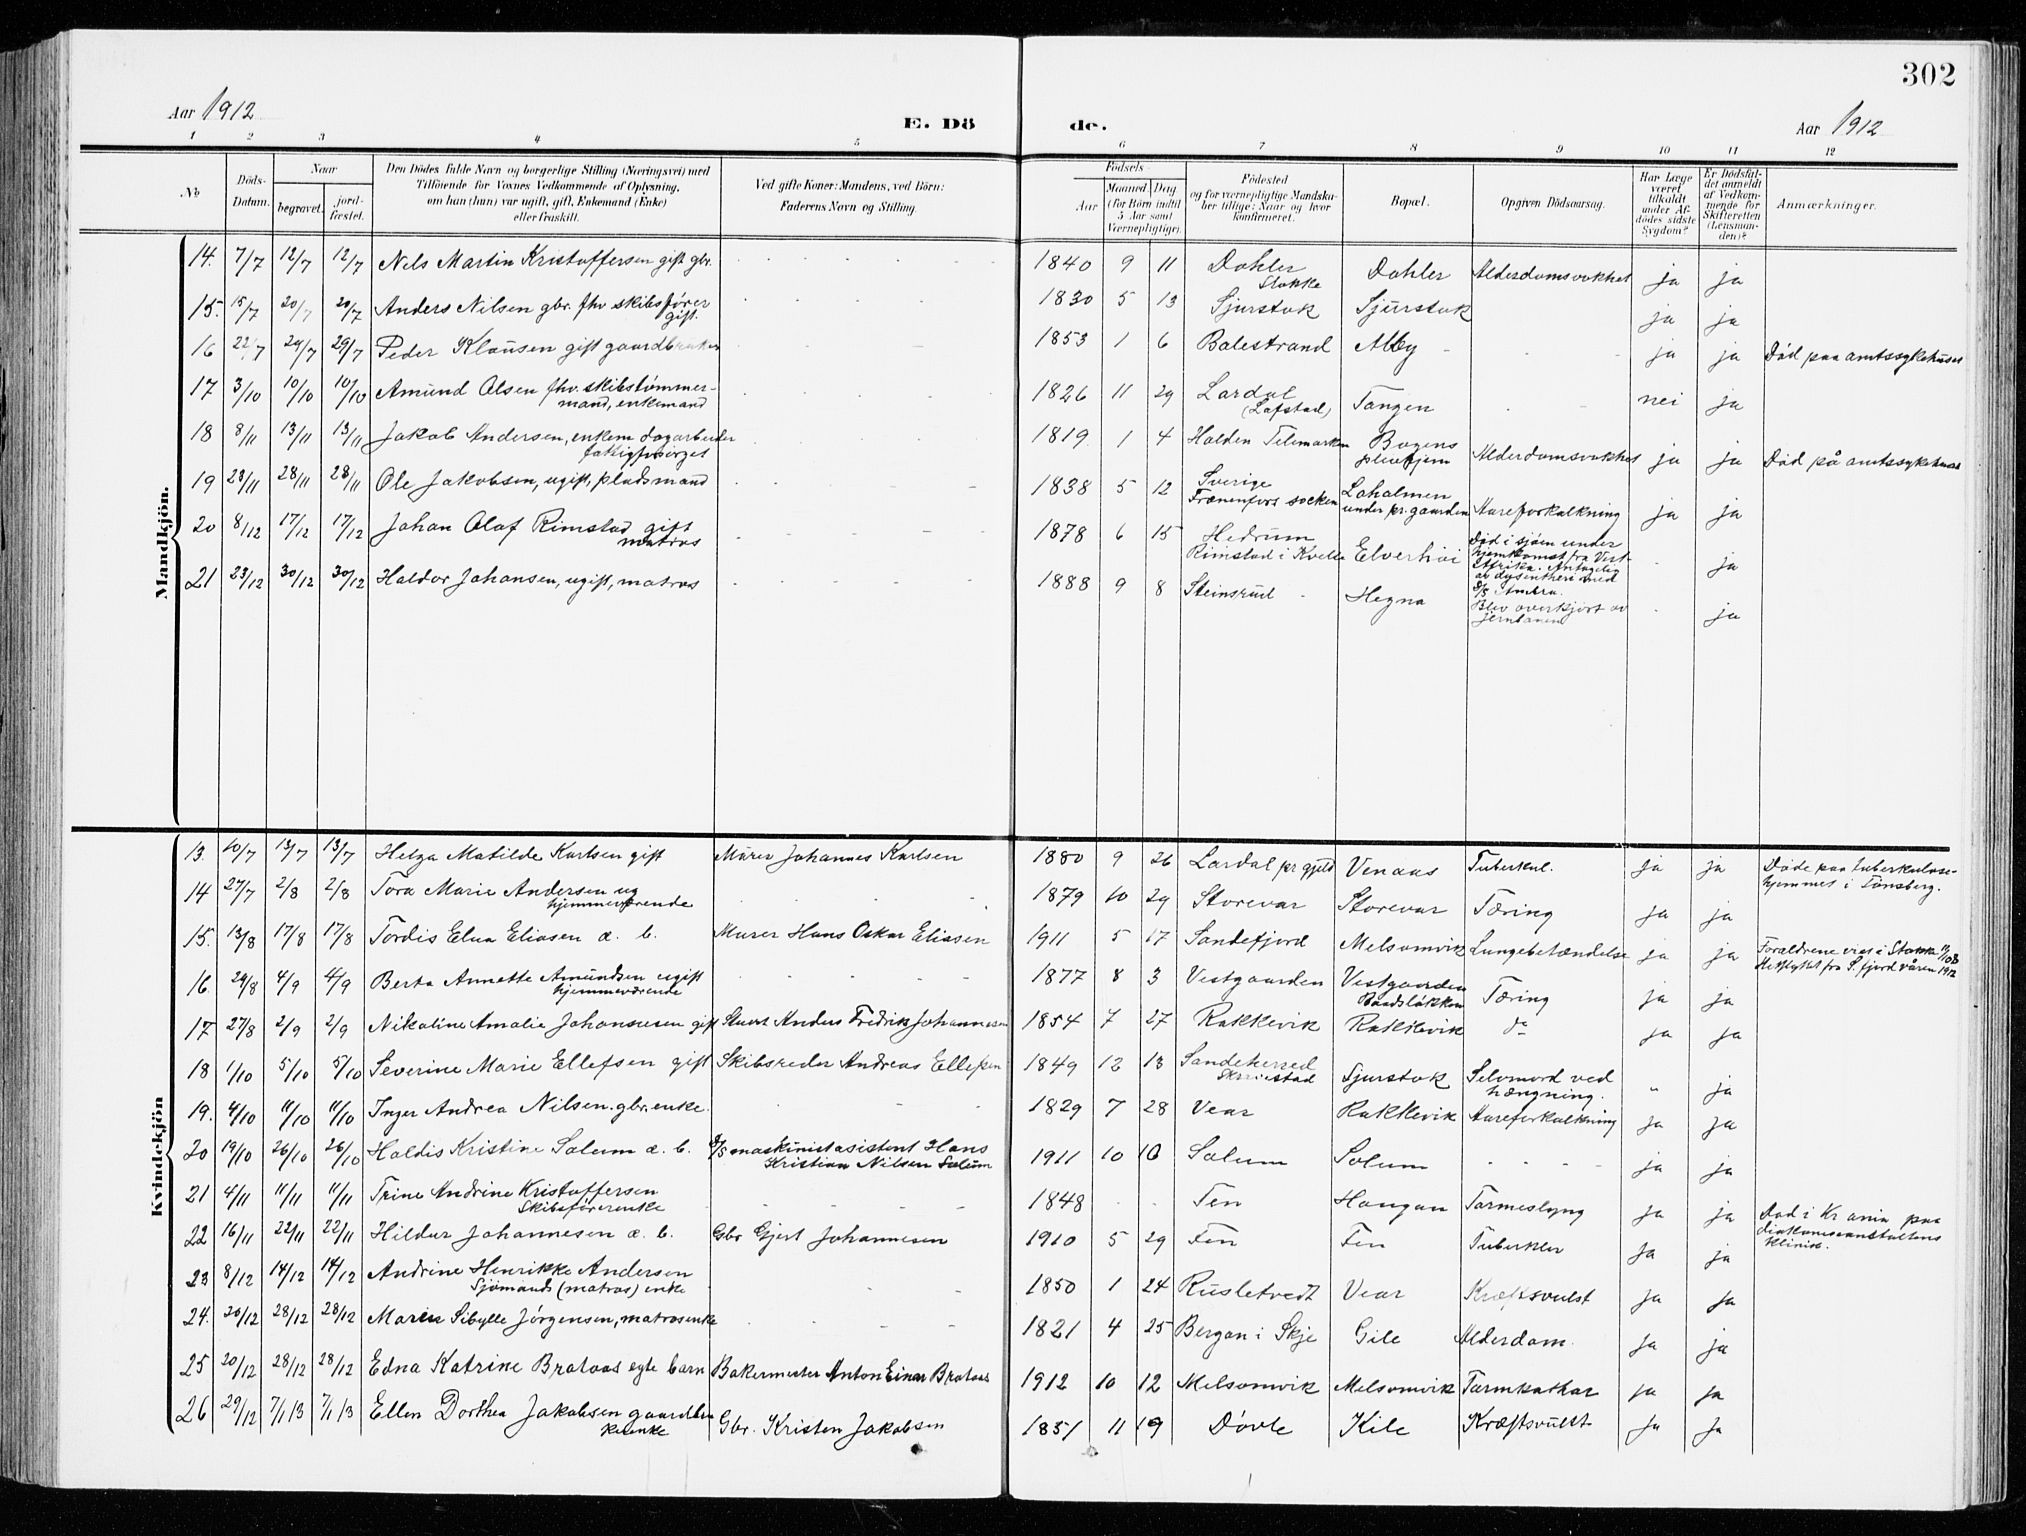 302
Aar 1912
E. Dö de.
Aar 1912
1 2 3 4 5 6 7 8 9 10 11 12
No
Döds-Datum.
Naar
begravet.
jord-fæstet.
Den Dödes fulde Navn og borgerlige Stilling (Næringsvei) med
Tilföiende for Voxnes Vedkommende af Oplysning,
om han (hun) var ugift, gift, Enkemand (Enke)
eller fraskilt.
Ved gifte Koner: Mandens, ved Börn:
Faderens Navn og Stilling.
Födsels-
Aar
Maaned. Dag
(for Börn indtil
5 Aar samt
Værnepligtige).
Födested
og for værnepligtige Mandska-
ber tillige: Naar og hvor
konfirmeret.
Bopæl.
Opgiven Dödsaarsag.
Har Læge
været
tilkaldt
under Af-
dödes sidste
Sygdom?
Er Dödsfal-
det anmeldt
af Vedkom-
mende for
Skifteretten
(Lensman-
den)?
Anmærkninger.
Mandkjön.
14. 7/7 12/7 12/7 Nels Martin Kristoffersen gift gbr. 1840 9 11 Dahler Stokke Dahler Alderdomsvakhet ja ja
15. 15/7 20/7 20/7 Anders Nilsen gbr. fhv skibsfører gift. 1830 5 13 Sjurstok Sjurstok ja ja
16 22/7 29/7 29/7 Peder Klausen gift gaardbruker 1853 1 6 Balestrand ja ja Död paa amtssykehuset
17 3/10 10/10 10/10 Amund Olsen fhv. skibstömmer-
mand, enkemand 1826 11 29 Lardal (Lofstad) Tangen nei ja
18 8/11 13/11 13/11 Jakob Andersen, enkem. dagarbeider
fattigforsörget 1819 1 4 Holden Telemarken Bogens pleiehjem Alderdomsvakhet ja ja Död på amtssykehuset
19 23/11 28/11 28/11 Ole Jakobsen, ugift, pladsmand 1838 5 12 Sverige socken Laholmen under pr.gaarden Aareforkalkning ja ja
20 8/12 17/12 17/12 Johan Olaf Rimstad gift
matros 1878 6 15 Hedrum Rimstad i Kvelle Elverhöi Död i sjöen under
hjemkomst fra Vest-
Afrika. Antagelig
av dysentheri med
S/S Ambra. ja
21 23/12 30/12 30/12 Haldor Johansen, ugift, matros 1888 9 8 Steinsrud Hegna Blev overkjört av
jernbanen ja
Kvindekjön
13. 10/7 13/7 13/7 Helga Matilde Karlsen gift Murer Johannes Karlsen 1880 9 26 Lardal pr gjeld Venaas Tuberkul. ja ja Döde paa tuberkulose-
hjemmet i Tönsberg.
14 27/7 2/8 2/8 Tora Marie Andersen ug
hjemmeværende 1879 10 29 Storevar Storevar Tæring ja ja
15. 13/8 17/8 17/8 Tordis Elna Eliasen æ. b. Murer Hans Oskar Eliasen 1911 5 17 Sandefjord Melsomvik Lungebetændelse ja ja Forældrene viet i Stokke
fra S.fjord våren 1912
16. 29/8 4/9 4/9 Berta Annette Amundsen ugift
hjemmeværende 1877 8 3 Vestgaarden Vestgaarden Tæring ja ja
17 27/8 2/9 2/9 Nikoline Amalie Johannesen gift Stuert Anders Fredrik Johannesen 1854 7 27 Rakkevik Rakkevik do ja ja
18 1/10 5/10 5/10 Severine Marie Ellefsen gift Skibsreder Andreas Ellefsen 1849 12 13 Sandeherred Sjurstok Selvmord ved
hængning. " ja
19. 4/10 11/10 11/10 Inger Andrea Nilsen. gbr.enke. 1829 7 28 Vear Rakkevik Aareforkalkning ja ja
20 19/10 26/10 26/10 Haldis Kristine Solum æ. b. maskinistasistent Hans
Kristian Nilsen Solum 1911 10 10 Solum Solum ja ja
21 4/11 11/11 11/11 Trine Andrine Kristoffersen
Skibsförerenke 1848 Fen Haugan Tarmeslyng ja ja
22 16/11 22/11 22/11 Hildur Johannesen æ. b. Gbr Gjert Johannesen 1910 5 29 Fen Fen Tuberkler ja ja Död i Kr.ania paa
diakonisseanstaltens
klinik.
23 8/12 14/12 14/12 Andrine Henrikke Andersen
Sjömands (matros) enke 1850 1 24 Rusletvedt Vear Kræftsvulst ja ja
24. 20/12 28/12 28/12 Maren Sibylle Jörgensen, matrosenke 1821 4 25 Bergan i Skje Gile Alderdom. ja ja
25 20/12 28/12 28/12 Edna Katrine Brataas egte barn Bakermester Anton Einar Brataas 1912 10 12 Melsomvik Melsomvik Tarmkatar ja ja
26 29/12 7/1 13 7/1 13 Ellen Dorthea Jakobsen gaardbru
kerenke Gbr. Kristen Jakobsen 1851 11 19 Dövle Kile Kræftsvulst ja ja